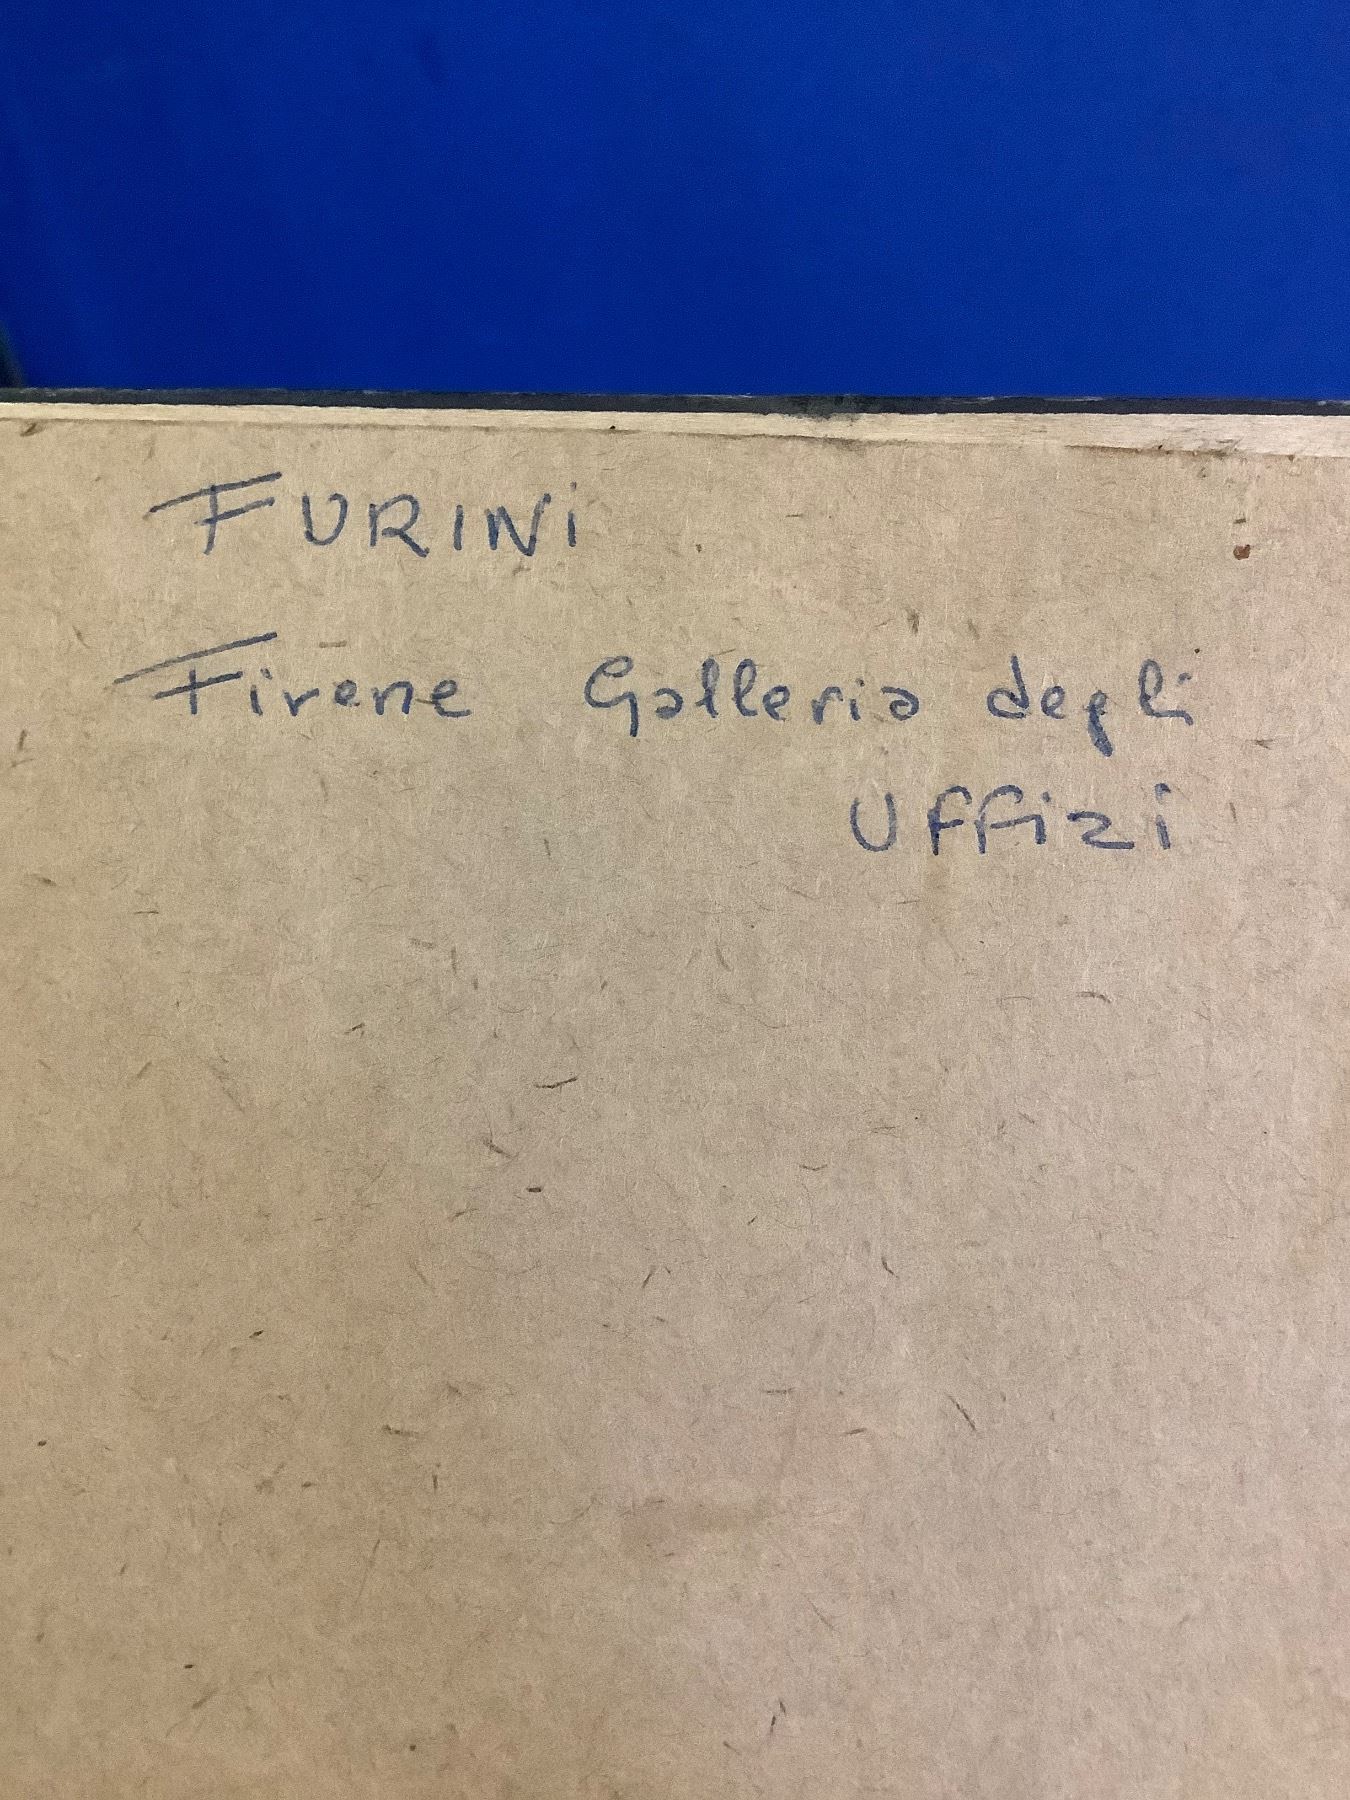 FURINi
Firenze Galleria degli
Uffizi